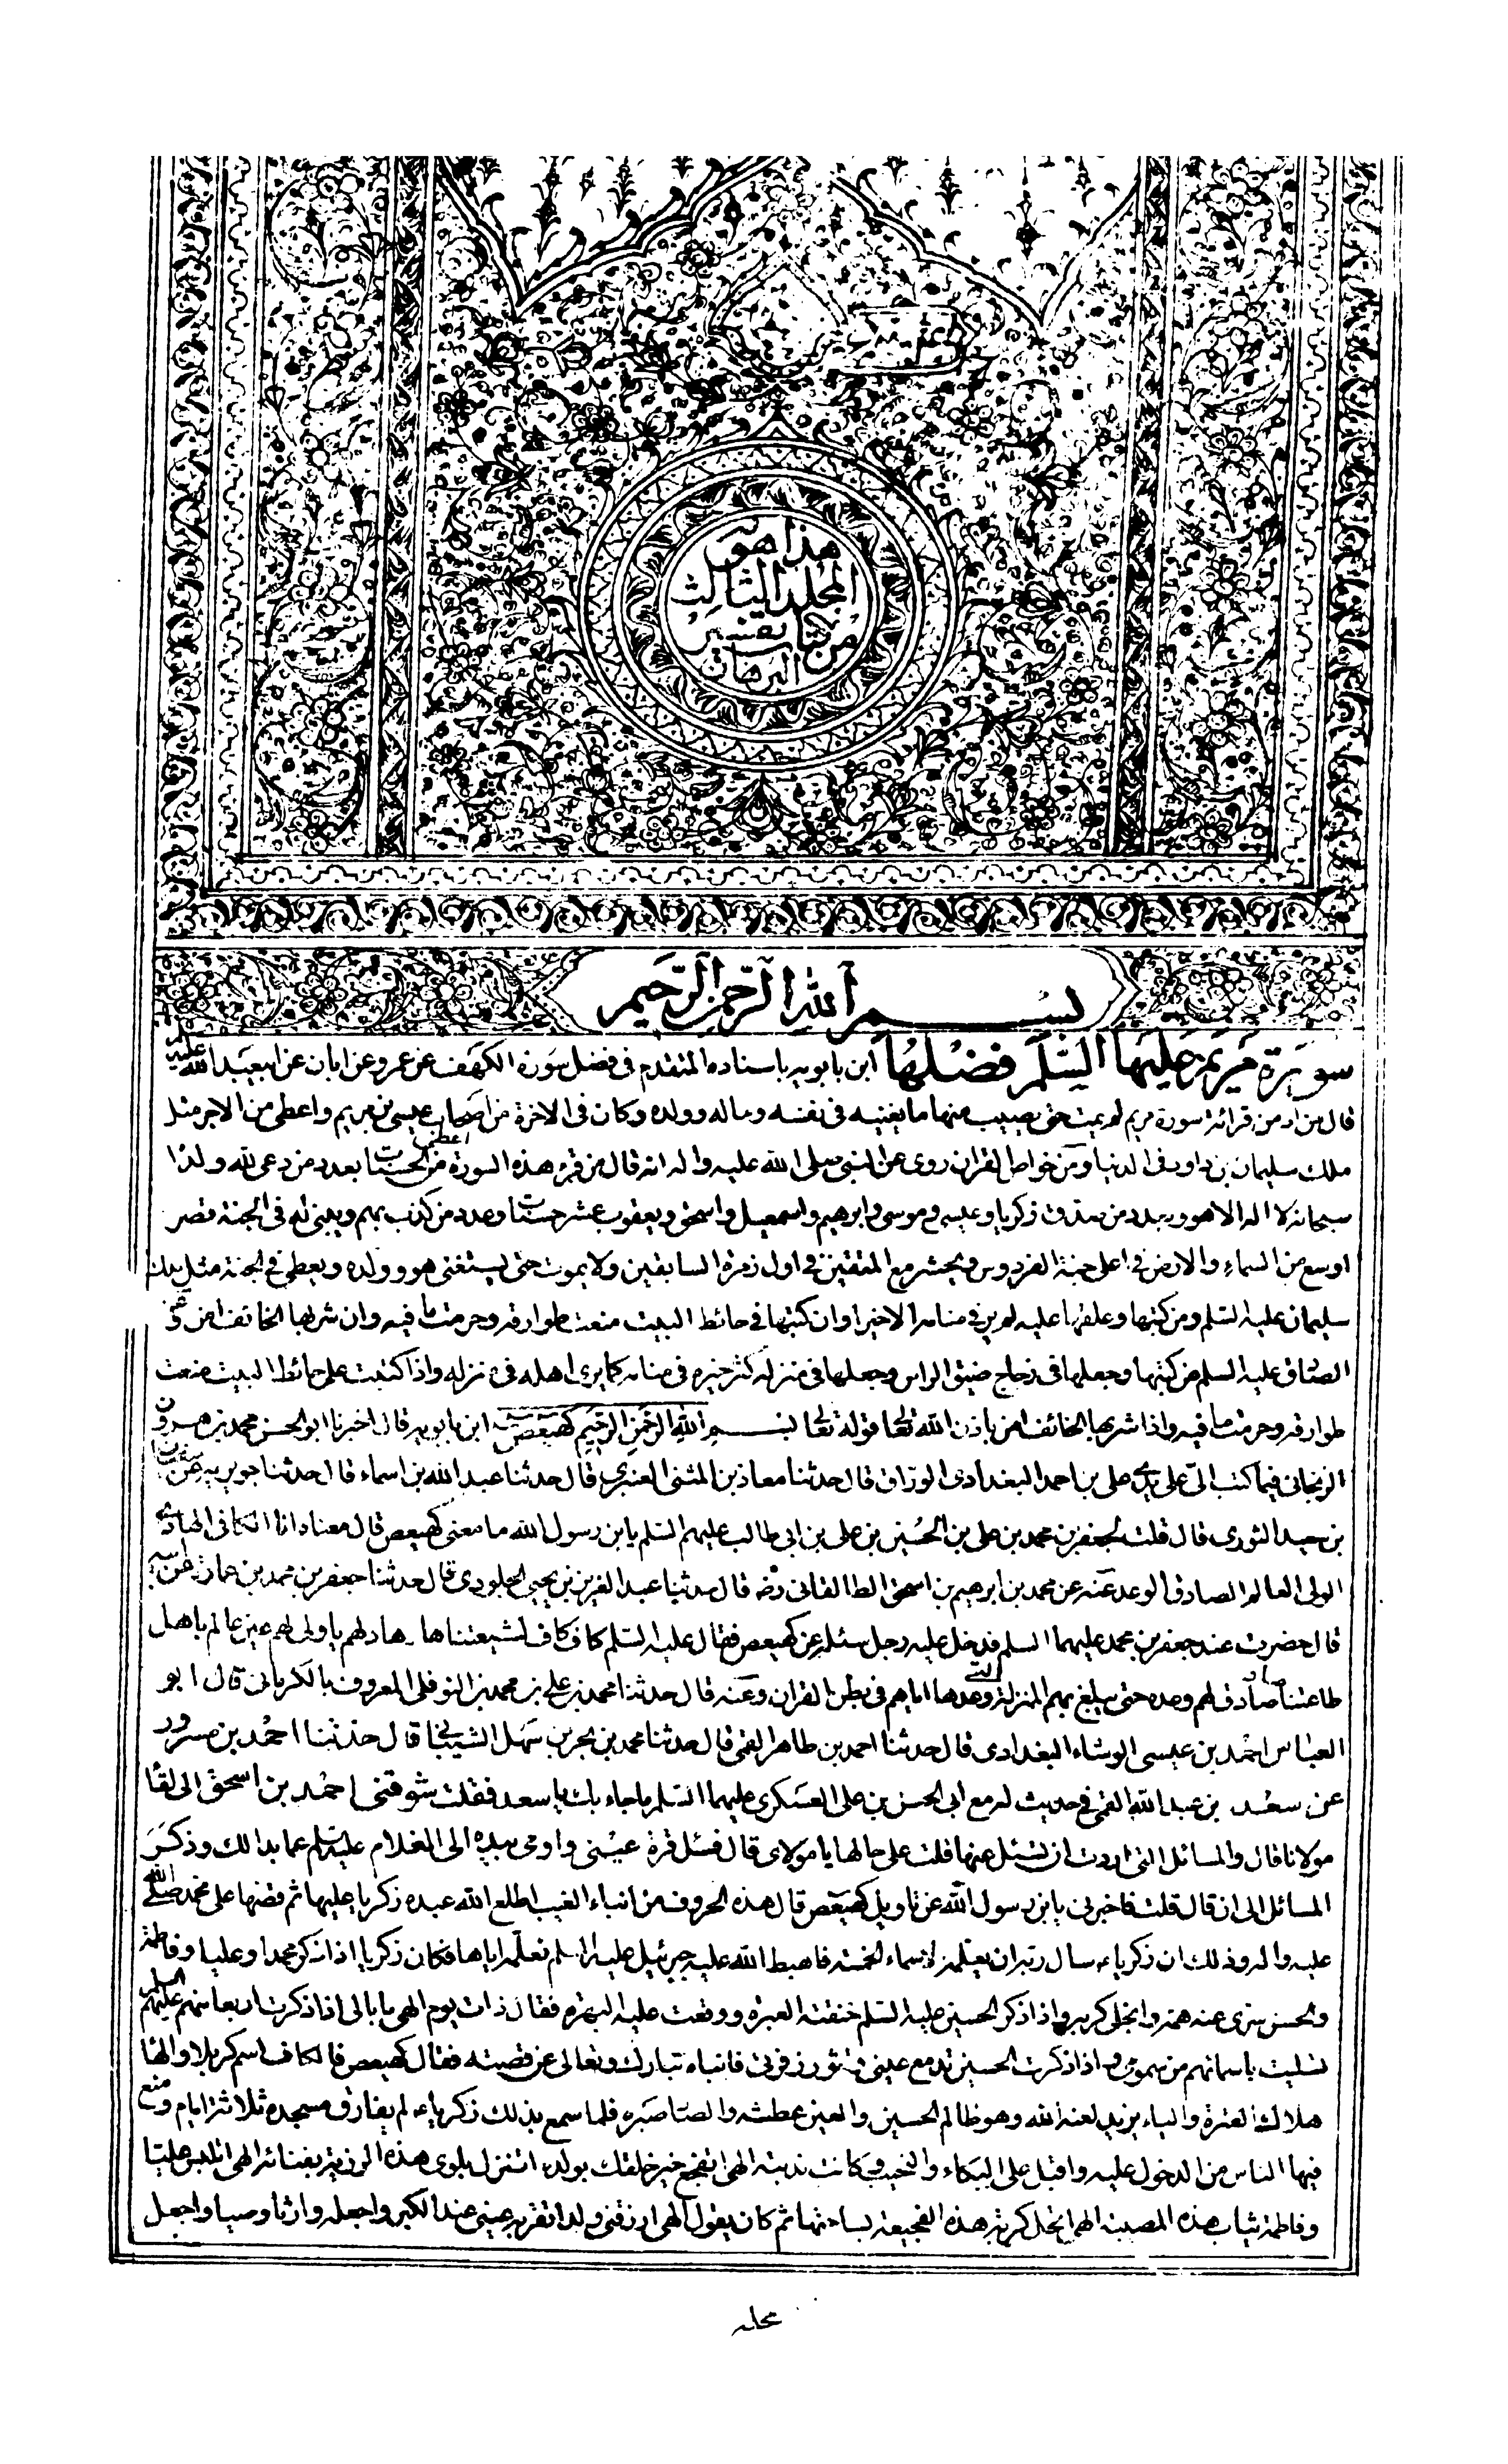 هذا هو
المجلد الثالث
من كتاب تفسير
البرهان
بسم الله الرحمن الرحيم
سورة مريم عليها السلم فضلها ابن بابويه باسناده المتقدم في فضل سورة الكهف عن عمرو عن ابان عن ابيعبد الله عليه السلم
قال من ادمن قرائة سورة مريم لم يمت حتى يصيب منها ما يغنيه في نفسه وماله وولده وكان في الاخرة من اصحاب عيسى بن مريم واعطى من الاجر مثل
ملك سليمان بن داود في الدنيا ومن خواص القران روى عن النبي صلى الله عليه واله انه قال من قرء هذه السورة اعطى من الحسنات بعدد من دعى لله ولدا
سبحانه لا اله الا هو وبعدد من صدق زكريا وعيسى وموسى وابرهيم واسمعيل واسحق ويعقوب عشر حسنات وعدد من كذب بهم ويبنى له في الجنة قصر
اوسع من السماء والارض في اعلى جنة الفردوس ويحشر مع المتقين في اول زمرة السابقين ولا يموت حتى يستغنى هو وولده ويعطى في الجنة مثل ملك
سليمان عليه السلم ومن كتبها وعلقها عليه لم ير في منامه الا خيرا وان كتبها في حائط البيت منعت طوارقه وحرمت ما فيه وان شربها الخائف امن وعن
الصادق عليه السلم من كتبها وجعلها في زجاج ضيق الراس وجعلها في منزله كثر خيره في منامه كما يرى اهله في منزله واذا كتبت على حائط البيت منعت
طوارقه وحرمت ما فيه واذا شربها الخائف امن باذن الله تعالى قوله تعالى بسم الله الرحمن الرحيم كهيعص ابن بابويه قال اخبرنا ابو الحسن محمد بن هرون
الزنجاني فيما كتب الى على يدي على بن احمد البغدادى الوراق قال حدثنا معاذ بن المثنى العنبرى قال حدثنا عبد الله بن اسماء قال حدثنا جويرية عن سفيان
بن سعيد الثورى قال قلت لجعفر بن محمد بن على بن الحسين بن على بن ابى طالب عليهم السلم يابن رسول الله ما معنى كهيعص قال معناه انا الكافى الهادى
الولى العالم الصادق الوعد عنه عن محمد بن ابرهيم بن اسحق الطالقانى رضه قال حدثنا عبد العزيز بن يحيى الجلودى قال حدثنا جعفر بن محمد بن عمارة عن ابيه
قال حضرت عند جعفر بن محمد عليهما السلم فدخل عليه رجل سئله عن كهيعص فقال عليه السلم كاف كاف لشيعتنا ها هاد لهم يا ولى لهم عين عالم باهل
طاعتنا صاد صادق لهم وعده حتى يبلغ بهم المنزلة التى وعدها اياهم في بطن القران وعنه قال حدثنا محمد بن على بن محمد بن النوفلى المعروف بالكرمانى قال ابو
العباس احمد بن عيسى الوشاء البغدادى قال حدثنا احمد بن طاهر القمى قال حدثنا محمد بن بحر بن سهل الشيبانى قال حدثنا احمد بن مسرور
عن سعد بن عبد الله القمى في حديث له مع ابى الحسن بن على العسكرى عليهما السلم ما جاء بك يا سعد فقلت شوقنى احمد بن اسحق الى لقاء
مولانا قال والمسائل التى اردت ان تسئل عنها قلت على حالها يا مولاى قال فسئل قرة عينى واومى بيده الى الغلام عليه السلم عما بدا لك وذكر
المسائل الى ان قال قلت فاخبرنى يابن رسول الله عن تاويل كهيعص قال هذه الحروف من انباء الغيب اطلع الله عبده زكريا عليها ثم قصها على محمد صلى الله
عليه واله وذلك ان زكرياء سال ربه ان يعلمه الاسماء الخمسة فاهبط الله عليه جبرئيل عليه السلم فعلمه اياها فكان زكريا اذا ذكر محمدا وعليا وفاطمة
والحسن سرى عنه همه وانجلى كربه واذا ذكر الحسين عليه السلم خنقته العبرة ووقعت عليه البهرة فقال ذات يوم الهى ما بالى اذا ذكرت اربعا منهم عليهم السلم
تسليت باسمائهم من همومى واذا ذكرت الحسين تدمع عينى وتثور زفرتى فانباه تبارك وتعالى عن قصته فقال كهيعص فالكاف اسم كربلا والهاء
هلاك العترة والياء يزيد لعنه الله وهو ظالم الحسين والعين عطشه والصاد صبره فلما سمع بذلك زكرياء لم يفارق مسجده ثلاثة ايام ومنع
فيها الناس من الدخول عليه واقبل على البكاء والنحيب وكانت ندبته الهى اتفجع خير خلقك بولده اتنزل بلوى هذه الرزية بفنائه الهى اتلبس عليا
وفاطمة ثياب هذه المصيبة الهى اتحل كربة هذه الفجيعة بساحتهما ثم كان يقول الهى ارزقنى ولدا تقر به عينى عند الكبر واجعله وارثا وصيا واجعل
محله